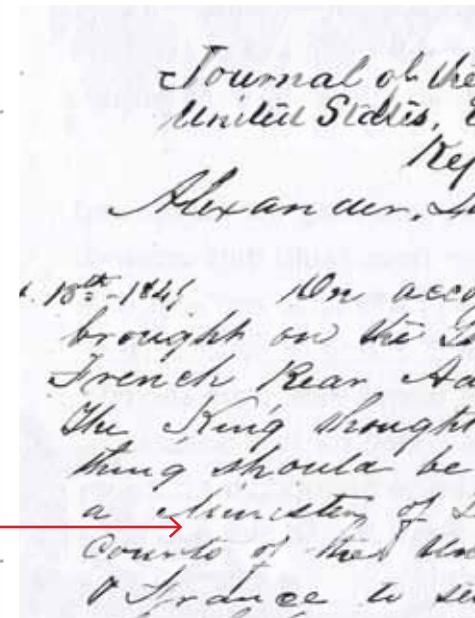 Journal of the
United States,
Alexander,
18th - 1849 On acco
brought on the
French Rear Ad
The King thought
thing should be
a Minister of
Courts of the Un
& France to se